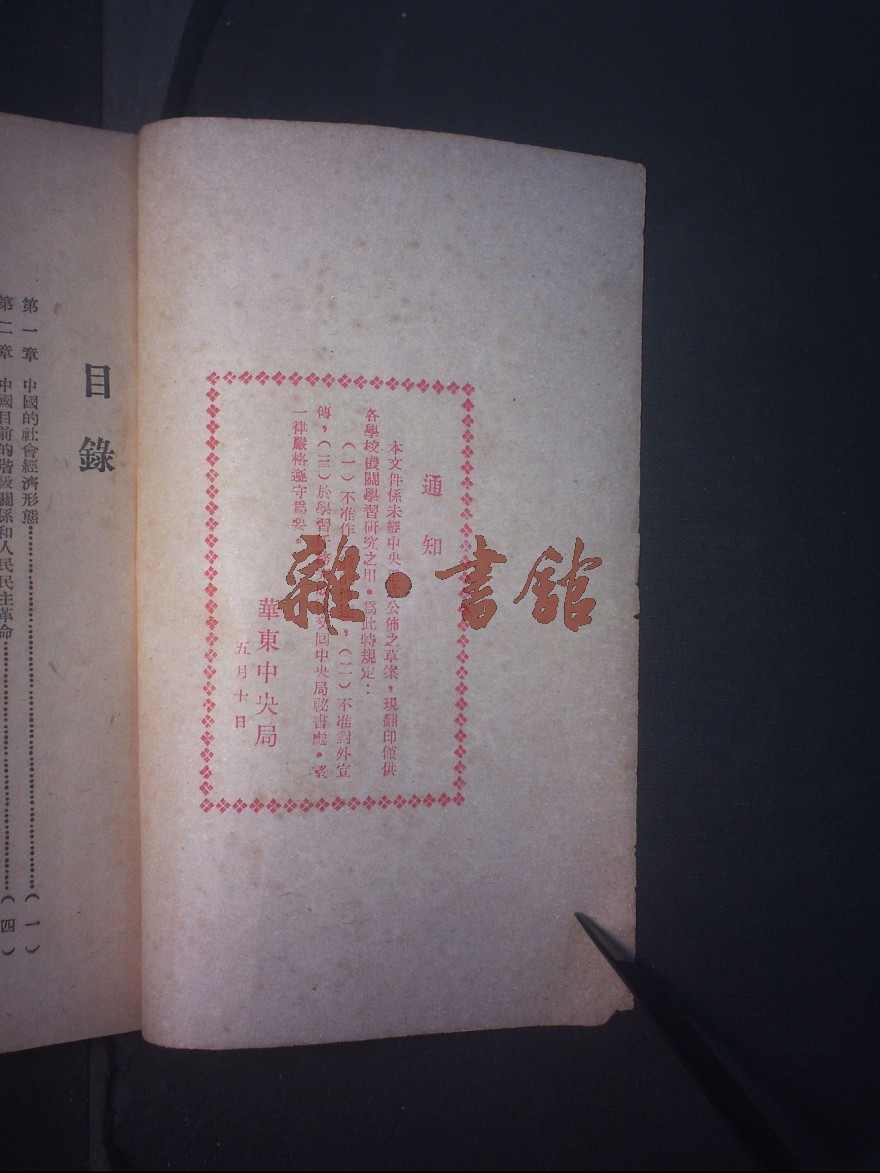 通知
本文件係未經中央公佈之草案，現翻印僅供
各學校機關學習研究之用。爲此特規定：
（一）不准作，（二）不准對外宣
傳，（三）於學習交回中央局秘書處。望
一律嚴格遵守爲要
華東中央局
五月十日
雜·書館
目錄
第一章 中國的社會經濟形態（一）
第二章 中國目前的階級關係和人民民主革命（四）